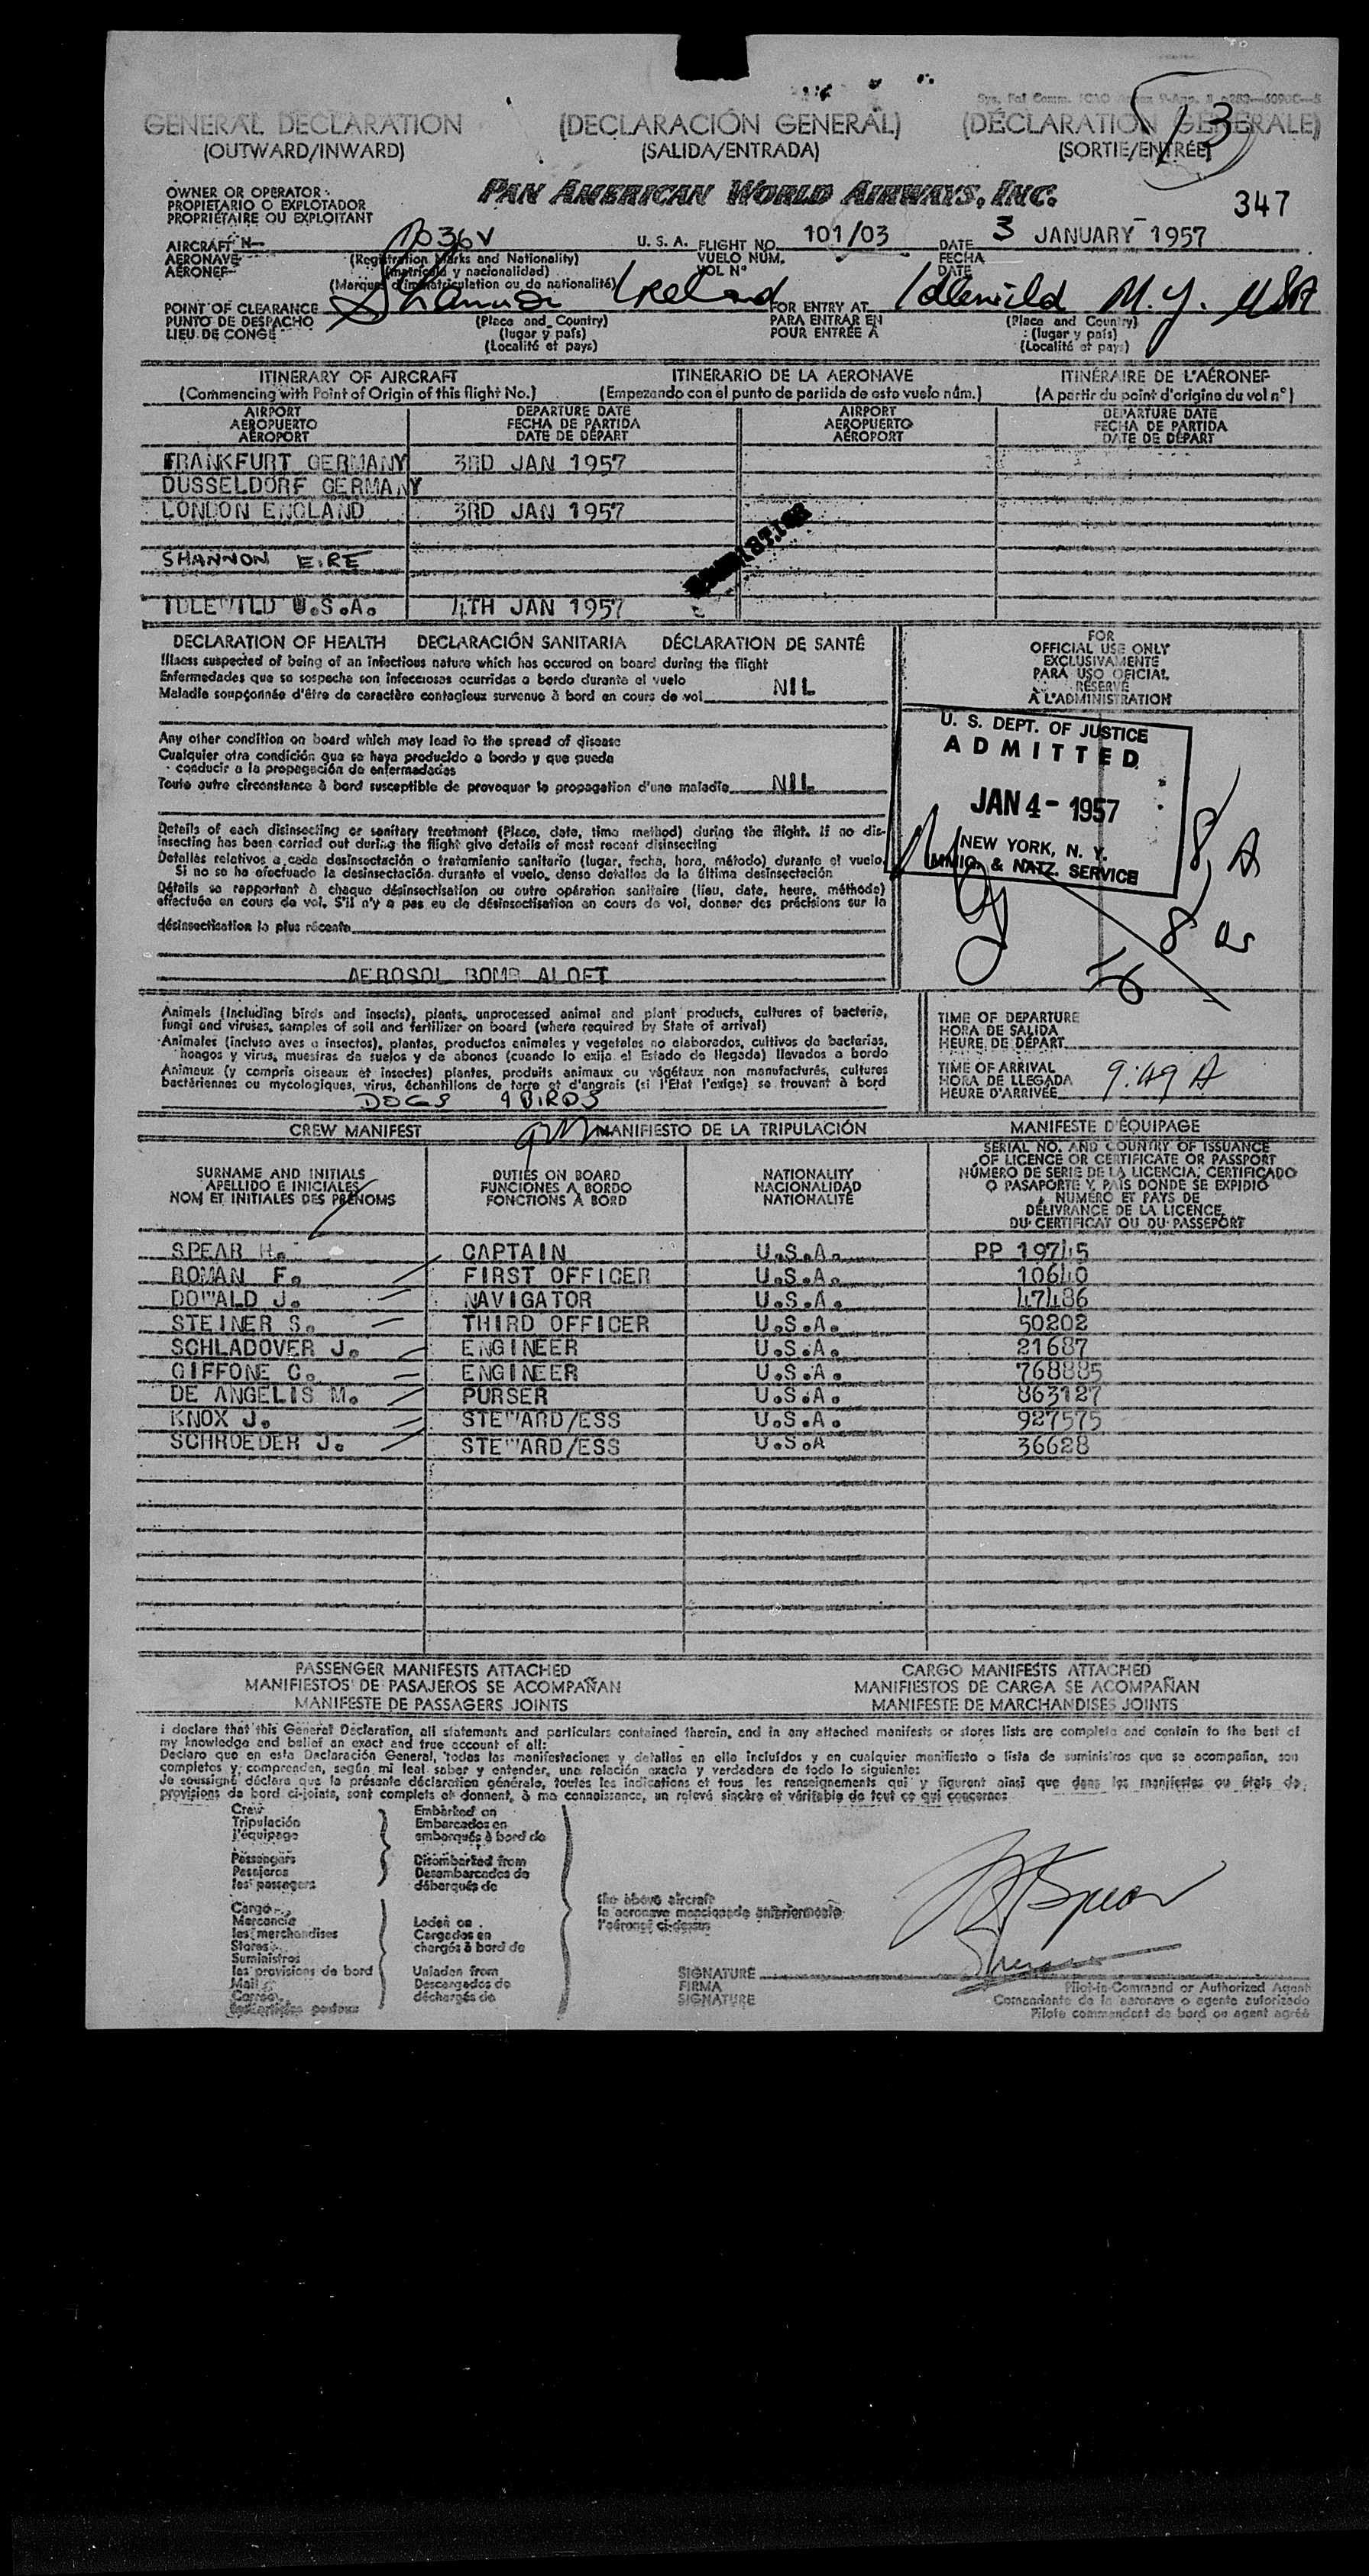 GENERAL DECLARATION (DECLARACIÓN GENERAL) (DÉCLARATION GÉNÉRALE)
(OUTWARD/INWARD) (SALIDA/ENTRADA) (SORTIE/ENTRÉE)
13
OWNER OR OPERATOR
PROPIETARIO O EXPLOTADOR
PROPRIÉTAIRE OU EXPLOITANT
PAN AMERICAN WORLD AIRWAYS, INC.
347
AIRCRAFT N— 1036V U. S. A. FLIGHT NO. 101/03 DATE 3 JANUARY 1957
AERONAVE (Registration Marks and Nationality) VUELO NÚM. FECHA
AÉRONEF (matrícula y nacionalidad) VOL N° DATE
(Marques d'immatriculation ou de nationalité)
POINT OF CLEARANCE Shannon Ireland FOR ENTRY AT Idlewild N.Y. USA
PUNTO DE DESPACHO (Place and Country) PARA ENTRAR EN (Place and Country)
LIEU DE CONGÉ (lugar y país) POUR ENTRÉE À (lugar y país)
(Localité et pays) (Localité et pays)
ITINERARY OF AIRCRAFT ITINERARIO DE LA AERONAVE ITINÉRAIRE DE L'AÉRONEF
(Commencing with Point of Origin of this flight No.) (Empezando con el punto de partida de esto vuelo núm.) (A partir du point d'origine du vol n°)
AIRPORT DEPARTURE DATE AIRPORT DEPARTURE DATE
AEROPUERTO FECHA DE PARTIDA AEROPUERTO FECHA DE PARTIDA
AÉROPORT DATE DE DÉPART AÉROPORT DATE DE DÉPART
FRANKFURT GERMANY 3RD JAN 1957
DUSSELDORF GERMANY
LONDON ENGLAND 3RD JAN 1957
SHANNON EIRE
IDLEWILD U.S.A. 4TH JAN 1957
DECLARATION OF HEALTH DECLARACIÓN SANITARIA DÉCLARATION DE SANTÉ
Illness suspected of being of an infectious nature which has occured on board during the flight
Enfermedades que se sospeche son infecciosas ocurridas a bordo durante el vuelo
Maladie soupçonnée d'être de caractère contagieux survenue à bord en cours de vol NIL
Any other condition on board which may lead to the spread of disease
Cualquier otra condición que se haya producido a bordo y que pueda
conducir a la propagación de enfermedades
Toute autre circonstance à bord susceptible de provoquer la propagation d'une maladie NIL
Details of each disinsecting or sanitary treatment (Place, date, time method) during the flight. If no dis-
insecting has been carried out during the flight give details of most recent disinsecting
Detalles relativos a cada desinsectación o tratamiento sanitario (lugar, fecha, hora, método) durante el vuelo.
Si no se ha efectuado la desinsectación durante el vuelo, dense detalles de la última desinsectación
Détails se rapportant à chaque désinsectisation ou autre opération sanitaire (lieu, date, heure, méthode)
effectuée en cours de vol. S'il n'y a pas eu de désinsectisation en cours de vol, donner des précisions sur la
désinsectisation la plus récente
AEROSOL BOMB ALOFT
FOR
OFFICIAL USE ONLY
EXCLUSIVAMENTE
PARA USO OFICIAL
RÉSERVÉ
À L'ADMINISTRATION
U. S. DEPT. OF JUSTICE
ADMITTED
JAN 4 - 1957
NEW YORK, N. Y.
IMMIG. & NATZ. SERVICE
8 A
8 as
16
Animals (including birds and insects), plants, unprocessed animal and plant products, cultures of bacteria,
fungi and viruses, samples of soil and fertilizer on board (where required by State of arrival)
Animales (incluso aves e insectos), plantas, productos animales y vegetales no elaborados, cultivos de bacterias,
hongos y virus, muestras de suelos y de abonos (cuando lo exija el Estado de llegada) llevados a bordo
Animaux (y compris oiseaux et insectes) plantes, produits animaux ou végétaux non manufacturés, cultures
bactériennes ou mycologiques, virus, échantillons de terre et d'engrais (si l'Etat l'exige) se trouvant à bord
DOGS 9 BIRDS
TIME OF DEPARTURE
HORA DE SALIDA
HEURE DE DÉPART
TIME OF ARRIVAL
HORA DE LLEGADA
HEURE D'ARRIVÉE 9:49 A
CREW MANIFEST MANIFIESTO DE LA TRIPULACIÓN MANIFESTE D'ÉQUIPAGE
SURNAME AND INITIALS
APELLIDO E INICIALES
NOM ET INITIALES DES PRÉNOMS
DUTIES ON BOARD
FUNCIONES A BORDO
FONCTIONS À BORD
NATIONALITY
NACIONALIDAD
NATIONALITÉ
SERIAL NO. AND COUNTRY OF ISSUANCE
OF LICENCE OR CERTIFICATE OR PASSPORT
NÚMERO DE SERIE DE LA LICENCIA, CERTIFICADO
O PASAPORTE Y PAÍS DONDE SE EXPIDIÓ
NUMÉRO ET PAYS DE
DÉLIVRANCE DE LA LICENCE,
DU CERTIFICAT OU DU PASSEPORT
SPEAR H. CAPTAIN U.S.A. PP 19745
ROMAN F. FIRST OFFICER U.S.A. 10640
DOWALD J. NAVIGATOR U.S.A. 47486
STEINER S. THIRD OFFICER U.S.A. 50202
SCHLADOVER J. ENGINEER U.S.A. 21687
GIFFONE C. ENGINEER U.S.A. 768885
DE ANGELIS M. PURSER U.S.A. 863127
KNOX J. STEWARD/ESS U.S.A. 927575
SCHROEDER J. STEWARD/ESS U.S.A 36628
PASSENGER MANIFESTS ATTACHED CARGO MANIFESTS ATTACHED
MANIFIESTOS DE PASAJEROS SE ACOMPAÑAN MANIFIESTOS DE CARGA SE ACOMPAÑAN
MANIFESTE DE PASSAGERS JOINTS MANIFESTE DE MARCHANDISES JOINTS
I declare that this General Declaration, all statements and particulars contained therein, and in any attached manifests or stores lists are complete and contain to the best of
my knowledge and belief an exact and true account of all:
Declaro que en esta Declaración General, todas las manifestaciones y detalles en ella incluídos y en cualquier manifiesto o lista de suministros que se acompañan, son
completos y comprenden, según mi leal saber y entender, una relación exacta y verdadera de todo lo siguiente:
Je soussigné déclare que la présente déclaration générale, toutes les indications et tous les renseignements qui y figurent ainsi que dans les manifestes ou états de
provisions de bord ci-joints, sont complets et donnent, à ma connaissance, un relevé sincère et véritable de tout ce qui concerne:
Crew
Tripulación
l'équipage
Passengers
Pasajeros
les passagers
Embarked on
Embarcados en
embarqués à bord de
Disembarked from
Desembarcados de
débarqués de
Cargo
Mercancía
les merchandises
Stores
Suministros
les provisions de bord
Mail
Correo
Laden on
Cargados en
chargés à bord de
Unladen from
Descargados de
déchargés de
the above aircraft
la aeronave mencionada anteriormente
l'aéronef ci-dessus
H Spear
SIGNATURE
FIRMA
SIGNATURE
Pilot-in-Command or Authorized Agent
Comandante de la aeronave o agente autorizado
Pilote commandant de bord ou agent agréé